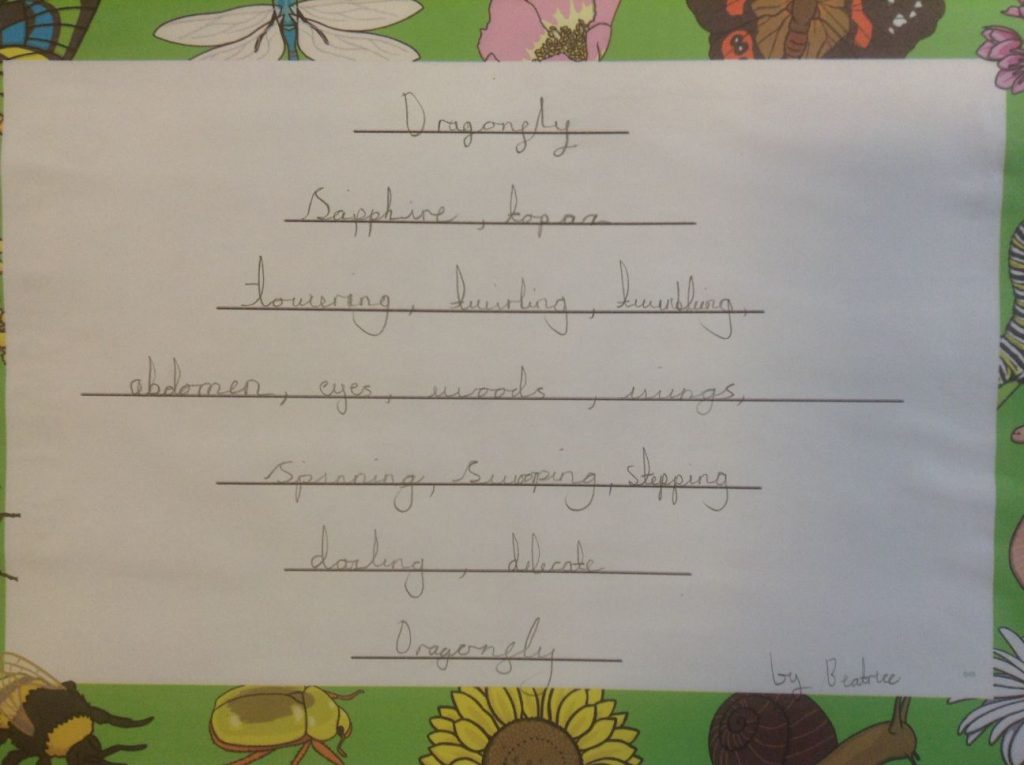 Dragonfly
Sapphire,
towering, twirling,
abdomen, eyes, woods, wings,
Spinning, Swooping, stepping
darling, delicate
Dragonfly
by Beatrice